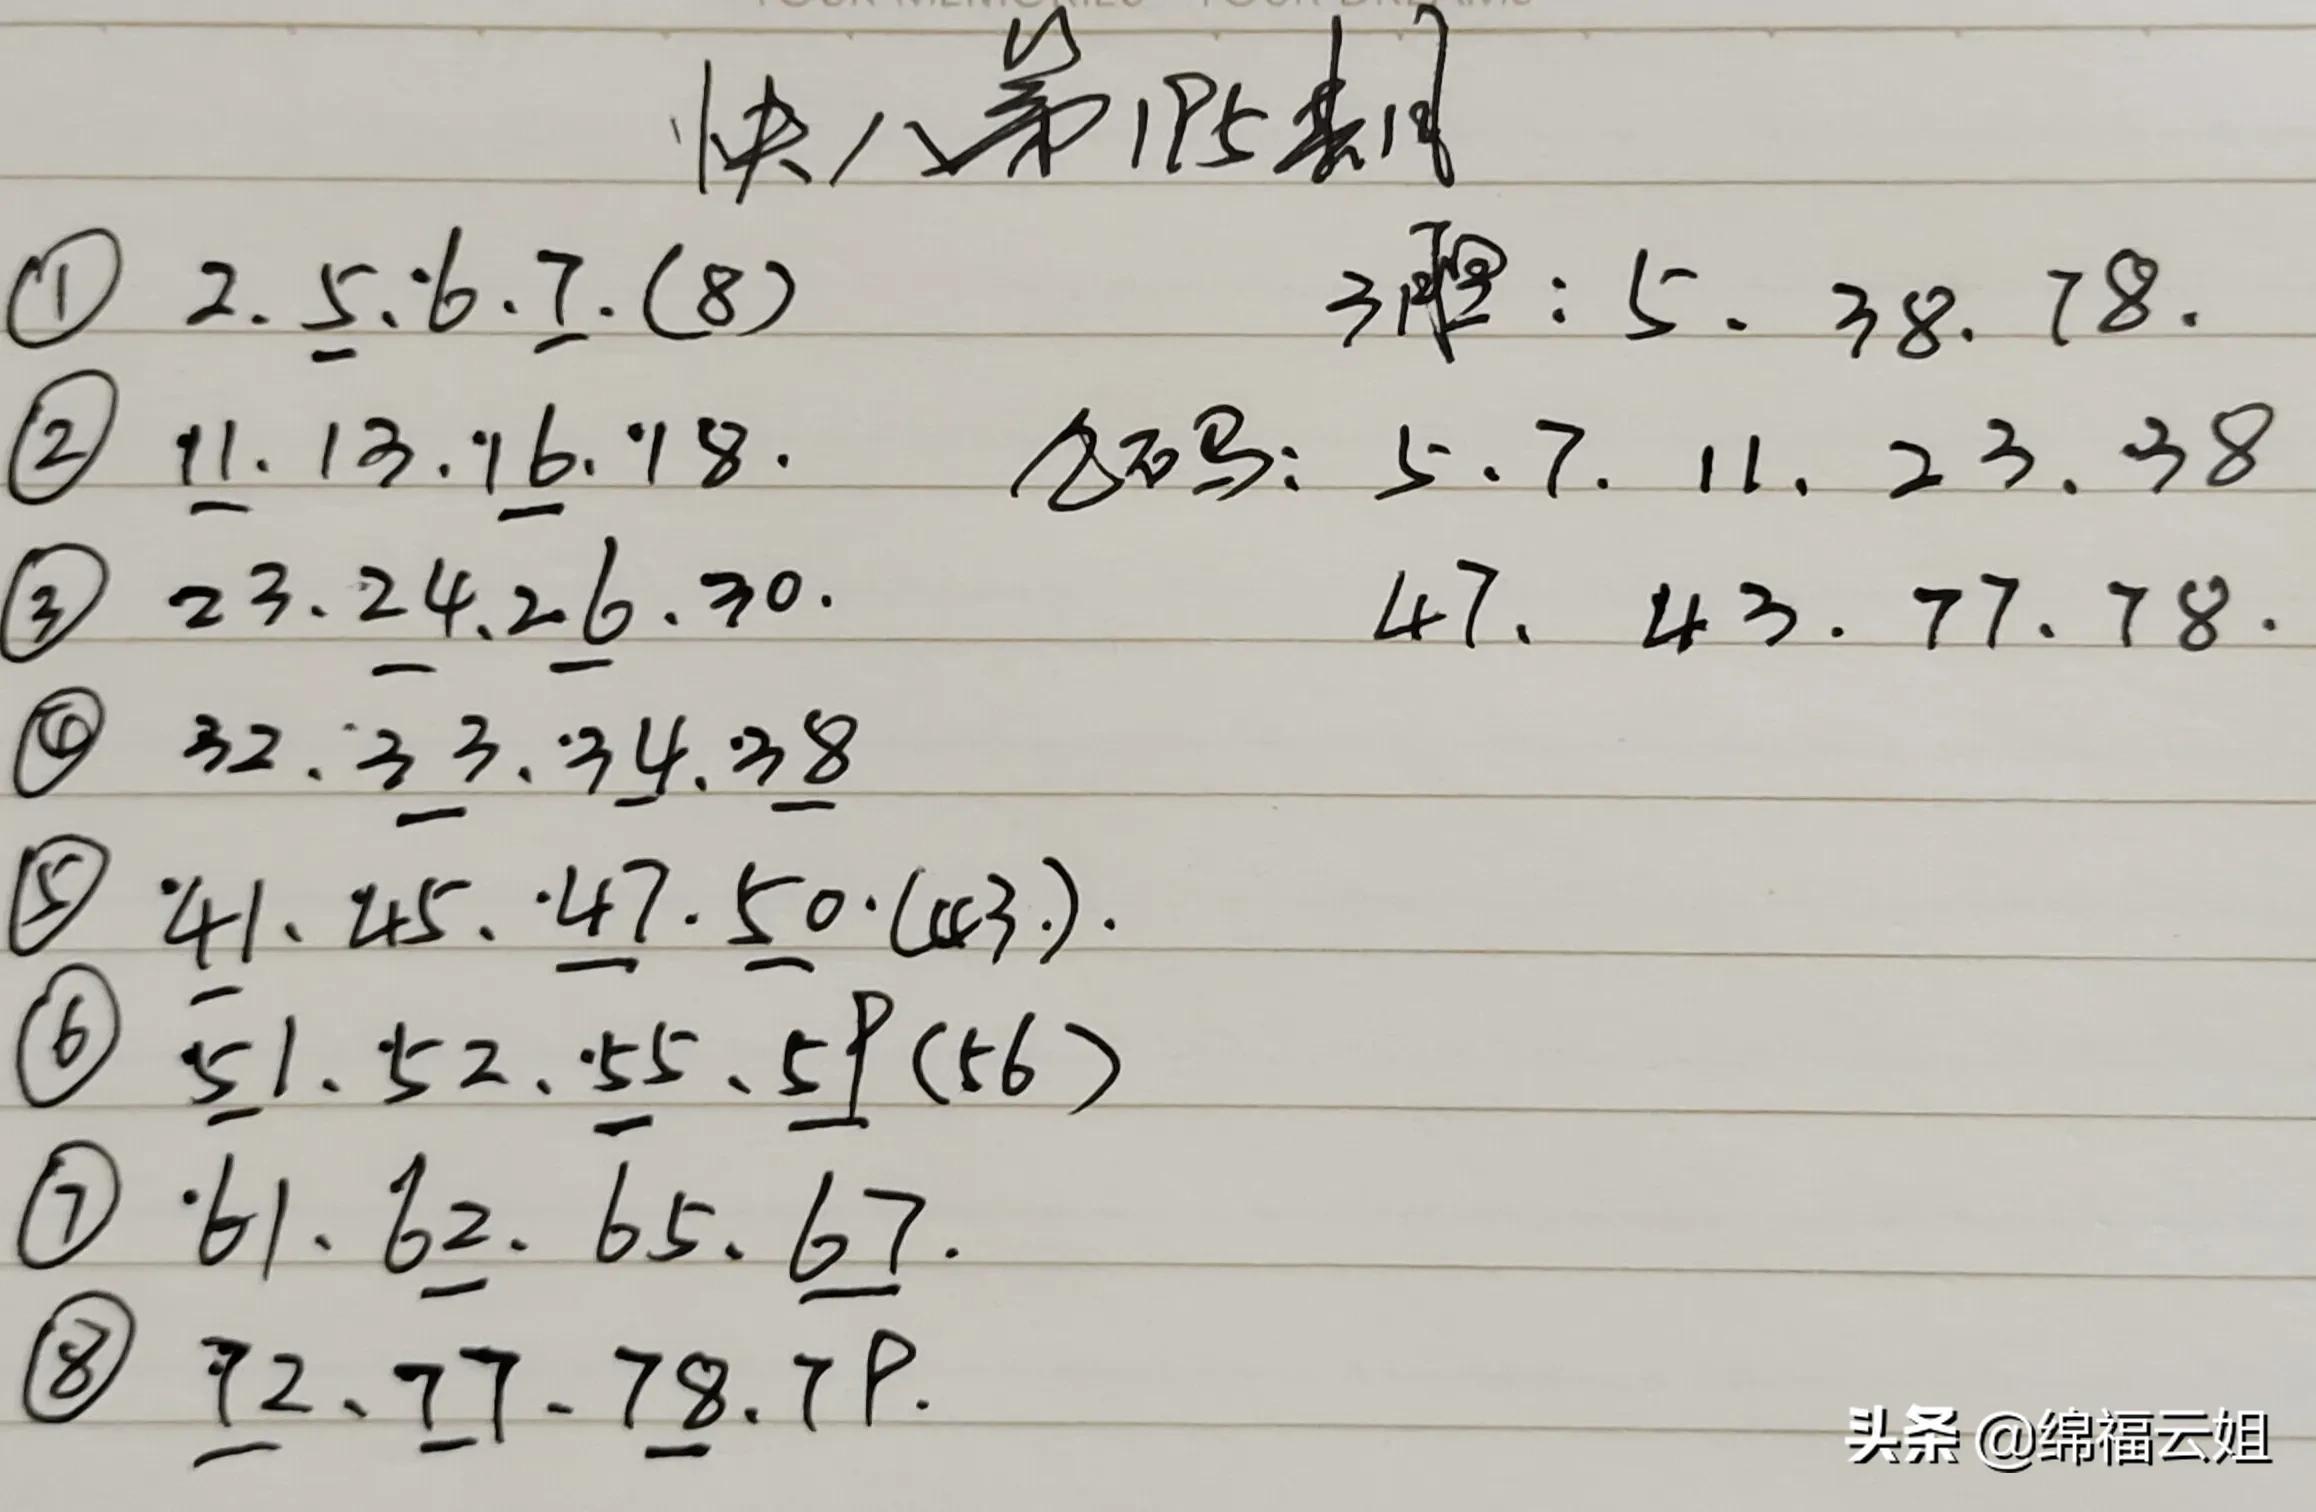 YOUR MEMORIES YOUR DREAMS
快八第195期
① 2. 5. 6. 7. (8)
3胆: 5. 38. 78.
② 11. 13. 16. 18.
码: 5. 7. 11. 23. 38
③ 23. 24. 26. 30.
47. 43. 77. 78.
④ 32. 33. 34. 38
⑤ 41. 45. 47. 50. (43.).
⑥ 51. 52. 55. 59 (56)
⑦ 61. 62. 65. 67.
⑧ 72. 77. 78. 79.
头条 @绵福云姐